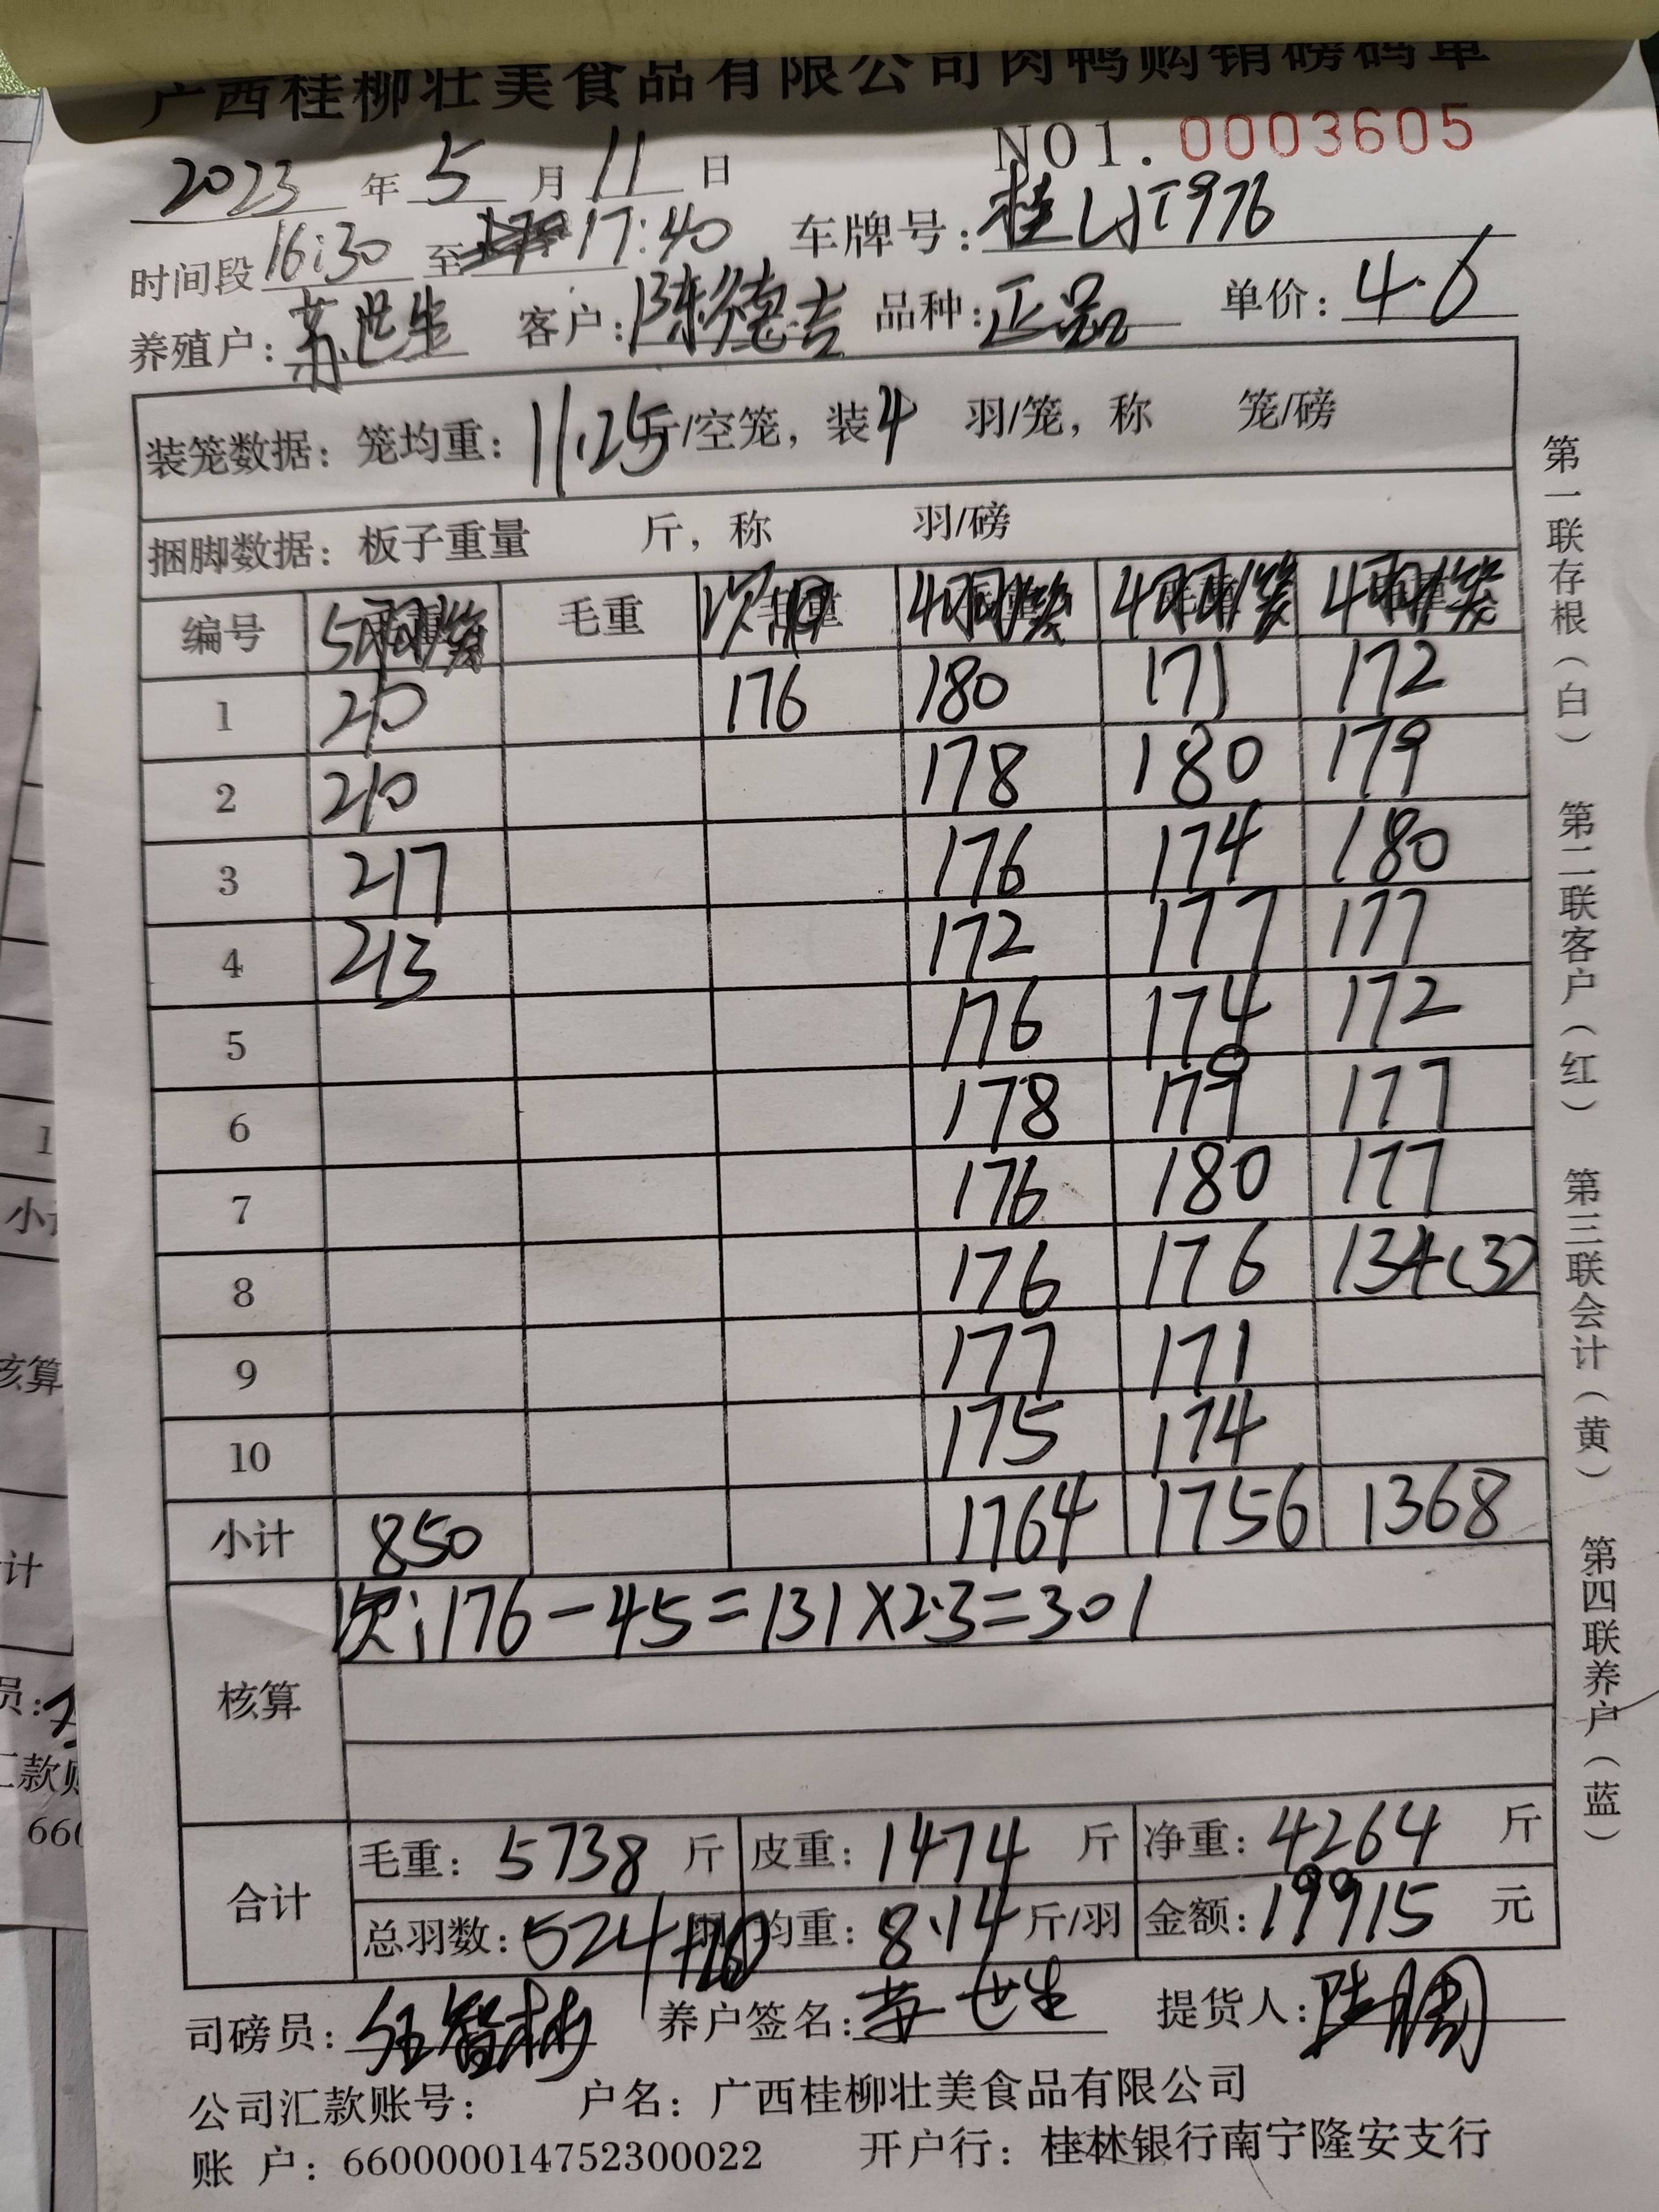 广西桂柳壮美食品有限公司肉鸭购销磅码单
NO1.0003605
2023年5月11日
时间段16:30至17:40 车牌号:桂
养殖户:苏世生 客户:陈德吉 品种:正品 单价:4.6
装笼数据:笼均重:11.25斤/空笼,装4 羽/笼,称 笼/磅
捆脚数据:板子重量 斤,称 羽/磅
编号 毛重
1 210 176 180 171 172
2 210 178 180 179
3 217 176 174 180
4 213 172 177 177
5 176 174 172
6 178 179 177
7 176 180 177
8 176 176 134(3)
9 177 171
10 175 174
小计 850 1764 1756 1368
核算 次:176-45=131×2.3=301
合计 毛重:5738斤 皮重:1474斤 净重:4264斤
总羽数:524+10 均重:8.14斤/羽 金额:19915元
司磅员: 养户签名:苏世生 提货人:
公司汇款账号: 户名:广西桂柳壮美食品有限公司
账 户:660000014752300022 开户行:桂林银行南宁隆安支行
第一联存根(白) 第二联客户(红) 第三联会计(黄) 第四联养户(蓝)